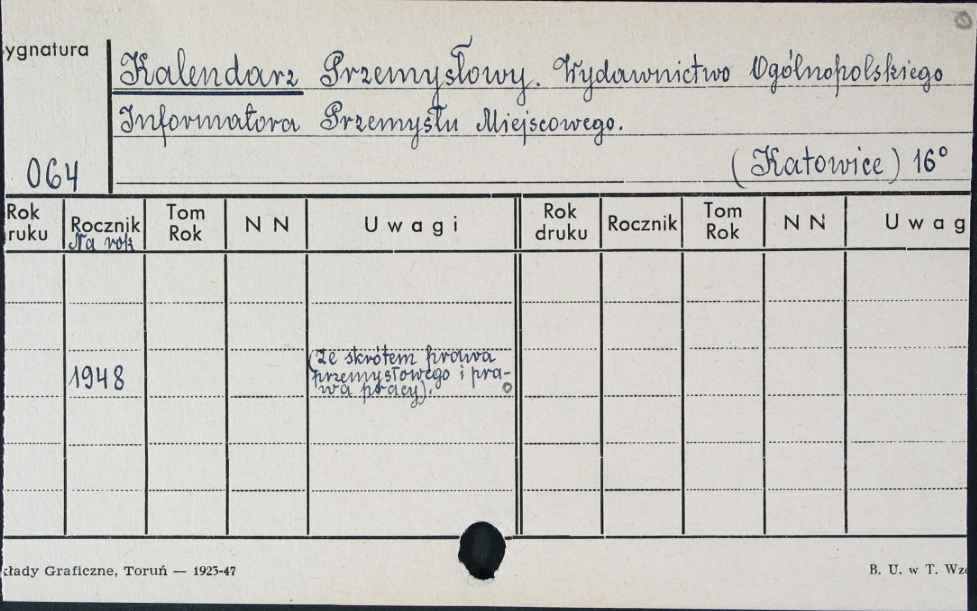 ygnatura
Kalendarz Przemysłowy. Wydawnictwo Ogólnopolskiego
Informatora Przemysłu Miejscowego.
064
(Katowice) 16°
Rok
ruku
Rocznik
Na rok
Tom
Rok
N N
Uwagi
Rok
druku
Rocznik
Tom
Rok
N N
Uwag
1948
(ze skrótem prawa
przemysłowego i pra-
wa pracy).
kłady Graficzne, Toruń — 1923-47
B. U. w T. Wzó